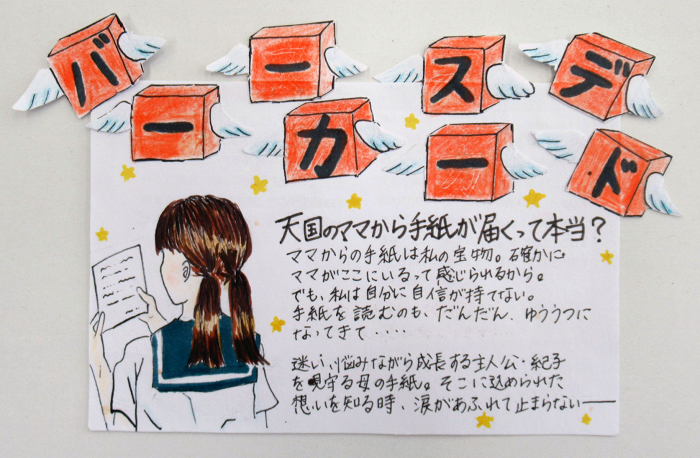 バースデーカード
天国のママから手紙が届くって本当?
ママからの手紙は私の宝物。確かに
ママがここにいるって感じられるから。
でも、私は自分に自信が持てない。
手紙を読むのも、だんだん、ゆううつに
なってきて・・・・
迷い、悩みながら成長する主人公・紀子
を見守る母の手紙。そこに込められた
想いを知る時、涙があふれて止まらない――